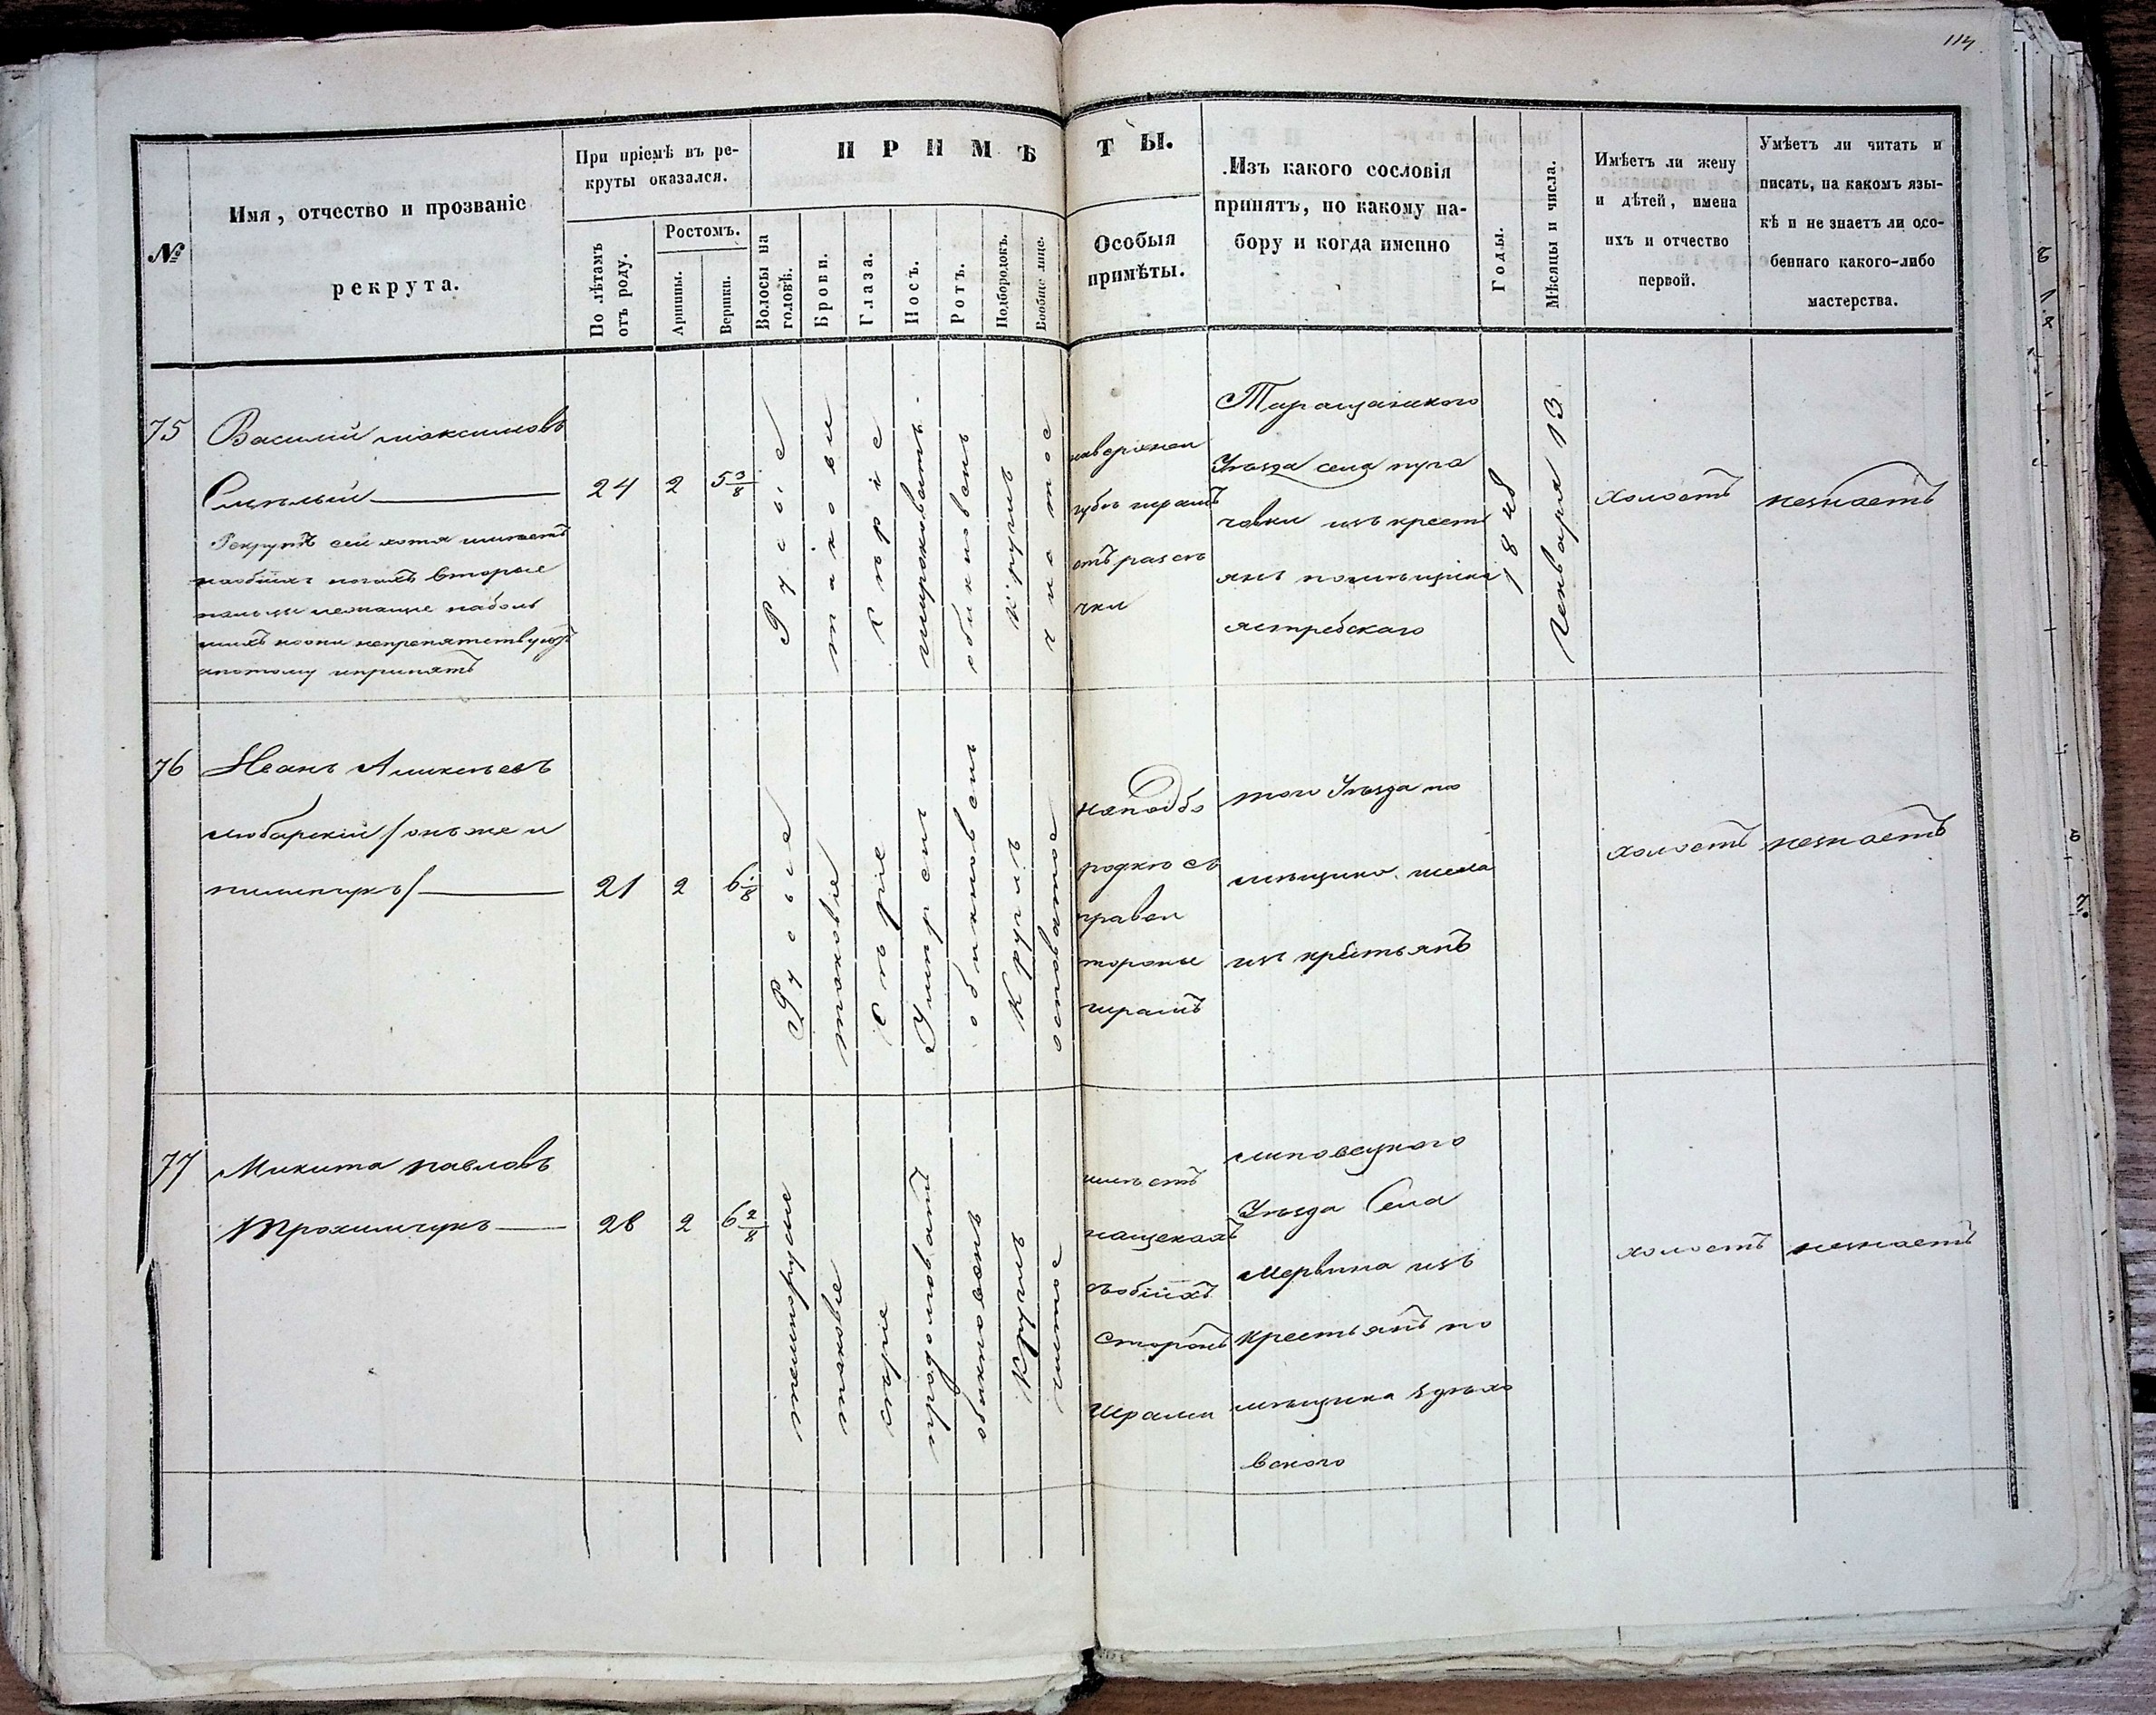 114
№
Имя, отчество и прозваніе
рекрута.
При пріемѣ въ ре-
круты оказался.
По лѣтамъ
отъ роду.
Ростомъ.
Аршины.
Вершки.
ПРИМѢТЫ.
Волосы на
головѣ.
Брови.
Глаза.
Носъ.
Ротъ.
Подбородокъ.
Вообще лице.
Особыя
примѣты.
Изъ какого сословія
принятъ, по какому на-
бору и когда именно
Годы.
Мѣсяцы и числа.
Имѣетъ ли жену
и дѣтей, имена
ихъ и отчество
первой.
Умѣетъ ли читать и
писать, на какомъ язы-
кѣ и не знаетъ ли осо-
беннаго какого-либо
мастерства.
75
Василій максимовъ
Рекрутъ сей хотя имѣетъ
наобѣихъ ногахъ вторые
пальцы лежащие наболь
шихъ но они непрепятствуютъ
апотому ипринятъ
24
2
5 3/8
Русые
таковы
сѣріе
широковатъ
обикновенъ
круглъ
чистое
наверхней
губѣ шрамъ
отъ разсѣ
чки
Таращанского
Уѣзда села пуга
човки изъ крестъ
янъ помѣщика
ястребскаго
Генваря 13.
холостъ
незнаетъ
76
Иванъ Аликсѣевъ
любарскій /онъ же и
пилипчукъ/
21
2
Русые
таковые
Сѣріе
обикновенъ
Круглъ
осповатое
наподбо
родкѣ съ
правой
тороны
шрамъ
того Уѣзда по
мѣщика
изъ крестьянъ
холостъ
незнаетъ
77
Микита павловъ
Трохимчукъ
28
2
6 2/8
темнорусые
таковые
сѣріе
продолговатъ
обикновенъ
Круглъ
чисто
имѣетъ
нащекахъ
зъобѣихъ
сторонъ
Шрами
липовецкого
Уѣзда Села
Мервина изъ
Крестьянъ по
мѣщика здѣхо
вского
холостъ
незнаетъ